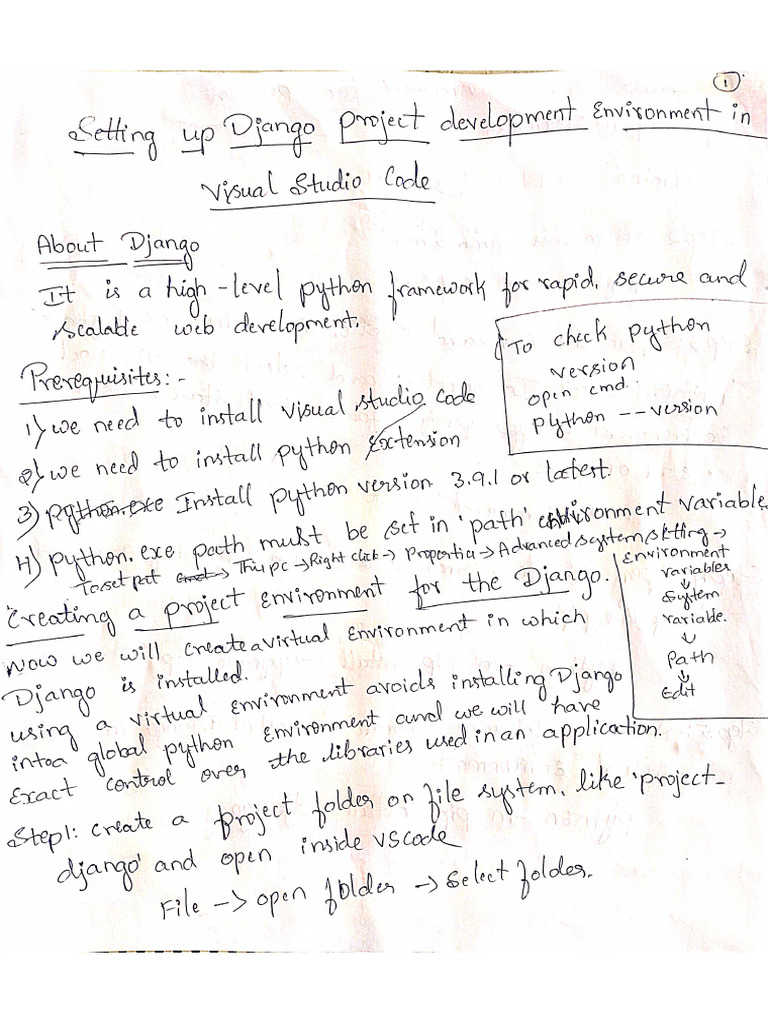 1
Setting up Django project development Environment in
Visual Studio Code
About Django
It is a high-level python framework for rapid, secure and
scalable web development.
To check python
version
open cmd.
python --version
Prerequisites:-
1) we need to install visual studio code
2) we need to install python Extension
3) python.exe Install python version 3.9.1 or latest.
4) python.exe path must be set in 'path' environment variable.
To set part → This pc → Right click → Properties → Advanced system setting →
Environment
variables
↓
System
variable.
↓
Path
↓
Edit
Creating a project Environment for the Django.
Now we will create a virtual Environment in which
Django is installed.
using a virtual Environment avoids installing Django
into a global python Environment and we will have
Exact control over the libraries used in an application.
Step1: create a project folder on file system. like 'project-
django' and open inside VScode
File → open folder → Select folder.